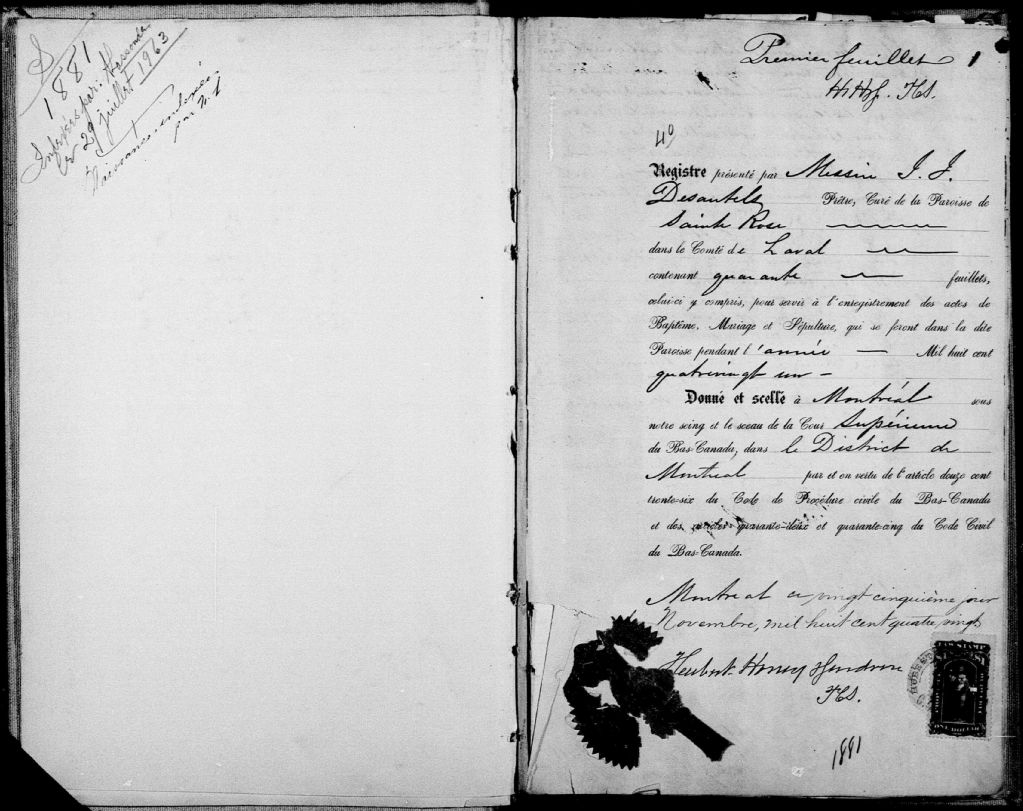 1881
Indexée par:
le 29 juillet 1963
Naissances indexées
par
Premier feuillet 1
HHH. HS.
4º
Registre présenté par Messire J. J.
Desautels Prêtre, Curé de la Paroisse de
Sainte Rose
dans le Comté de Laval
contenant quarante feuillets,
celui-ci y compris, pour servir à l'enregistrement des actes de
Baptême, Mariage et Sépulture, qui se feront dans la dite
Paroisse pendant l'année — Mil huit cent
quatrevingt un –
Donné et scellé à Montréal sous
notre seing et le sceau de la Cour Supérieure
du Bas-Canada, dans le District de
Montreal par et en vertu de l'article douze cent
trente-six du Code de Procédure civile du Bas-Canada
et des articles quarante-deux et quarante-cinq du Code Civil
du Bas-Canada.
Montreal ce vingt cinquième jour
Novembre, mil huit cent quatre vingt
Henry
HS.
ONE DOLLAR
1881